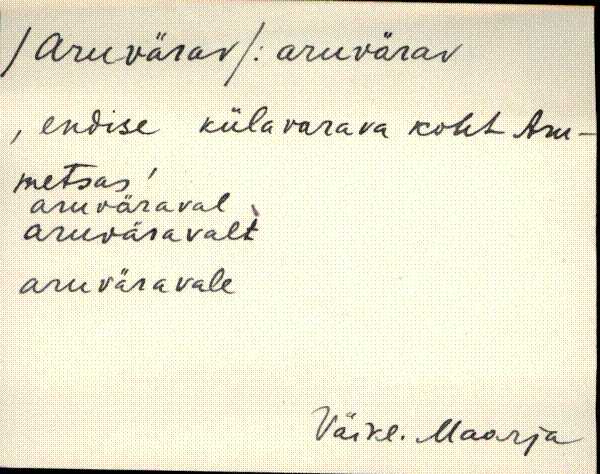 /Aruvärav/: aruvärav
, endise külavärava koht Aru-
metsas'
aruväraval
aruväravalt
aruväravale
Väike. Maarja